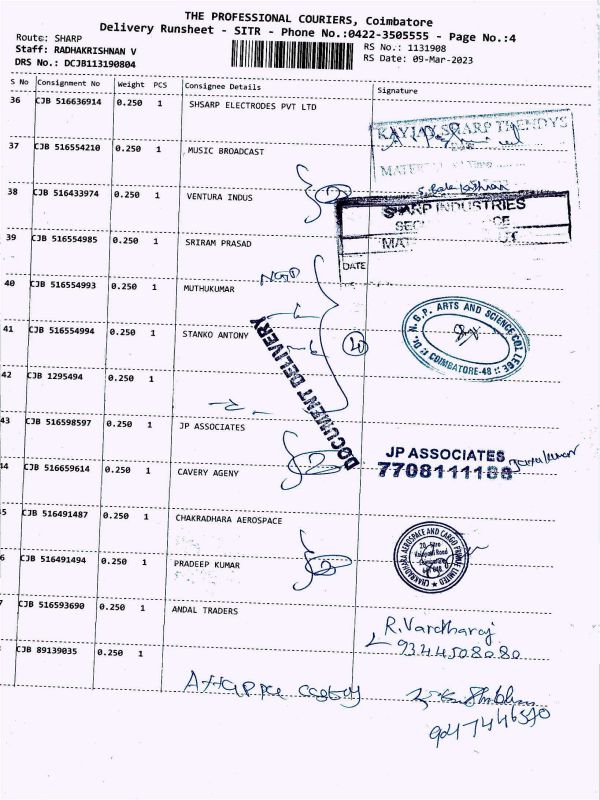 THE PROFESSIONAL COURIERS, Coimbatore
Delivery Runsheet - SITR - Phone No.:0422-3505555 - Page No.:4
Route: SHARP
Staff: RADHAKRISHNAN V
DRS No.: DCJB113190804
RS No.: 1131908
RS Date: 09-Mar-2023
S No Consignment No Weight PCS Consignee Details Signature
36 CJB 516636914 0.250 1 SHSARP ELECTRODES PVT LTD
KAYJAY SHARP TRENDYS
37 CJB 516554210 0.250 1 MUSIC BROADCAST
38 CJB 516433974 0.250 1 VENTURA INDUS
SHARP INDUSTRIES
39 CJB 516554985 0.250 1 SRIRAM PRASAD
DATE
40 CJB 516554993 0.250 1 MUTHUKUMAR
Dr. N.G.P. ARTS AND SCIENCE COLLEGE
COIMBATORE-48
41 CJB 516554994 0.250 1 STANKO ANTONY
DOCUMENT DELIVERY
42 CJB 1295494 0.250 1
43 CJB 516598597 0.250 1 JP ASSOCIATES
JP ASSOCIATES
7708111188
44 CJB 516659614 0.250 1 CAVERY AGENY
5 CJB 516491487 0.250 1 CHAKRADHARA AEROSPACE
CHAKRADHARA AEROSPACE AND CARGO PRIVATE LIMITED
6 CJB 516491494 0.250 1 PRADEEP KUMAR
7 CJB 516593690 0.250 1 ANDAL TRADERS
R. Vardharaj
9344508080
CJB 89139035 0.250 1
9047446570